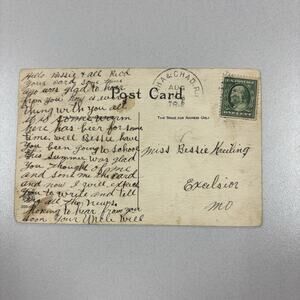 Hello Bessie & all Recd
your card some time
ago was glad to hear
from you how is every
thing with you all
it is some warm
here has been for some
time. well Bessie have
You been going to school
this Summer was glad
You thought of me
and send me the card
and now I will expect
You to write and tell
me all the news.
hoping to hear from you
soon Your Uncle Will
Post Card
THE SPACE FOR ADDRESS ONLY
AUG
Miss Bessie Keeting
Excelsior
MO